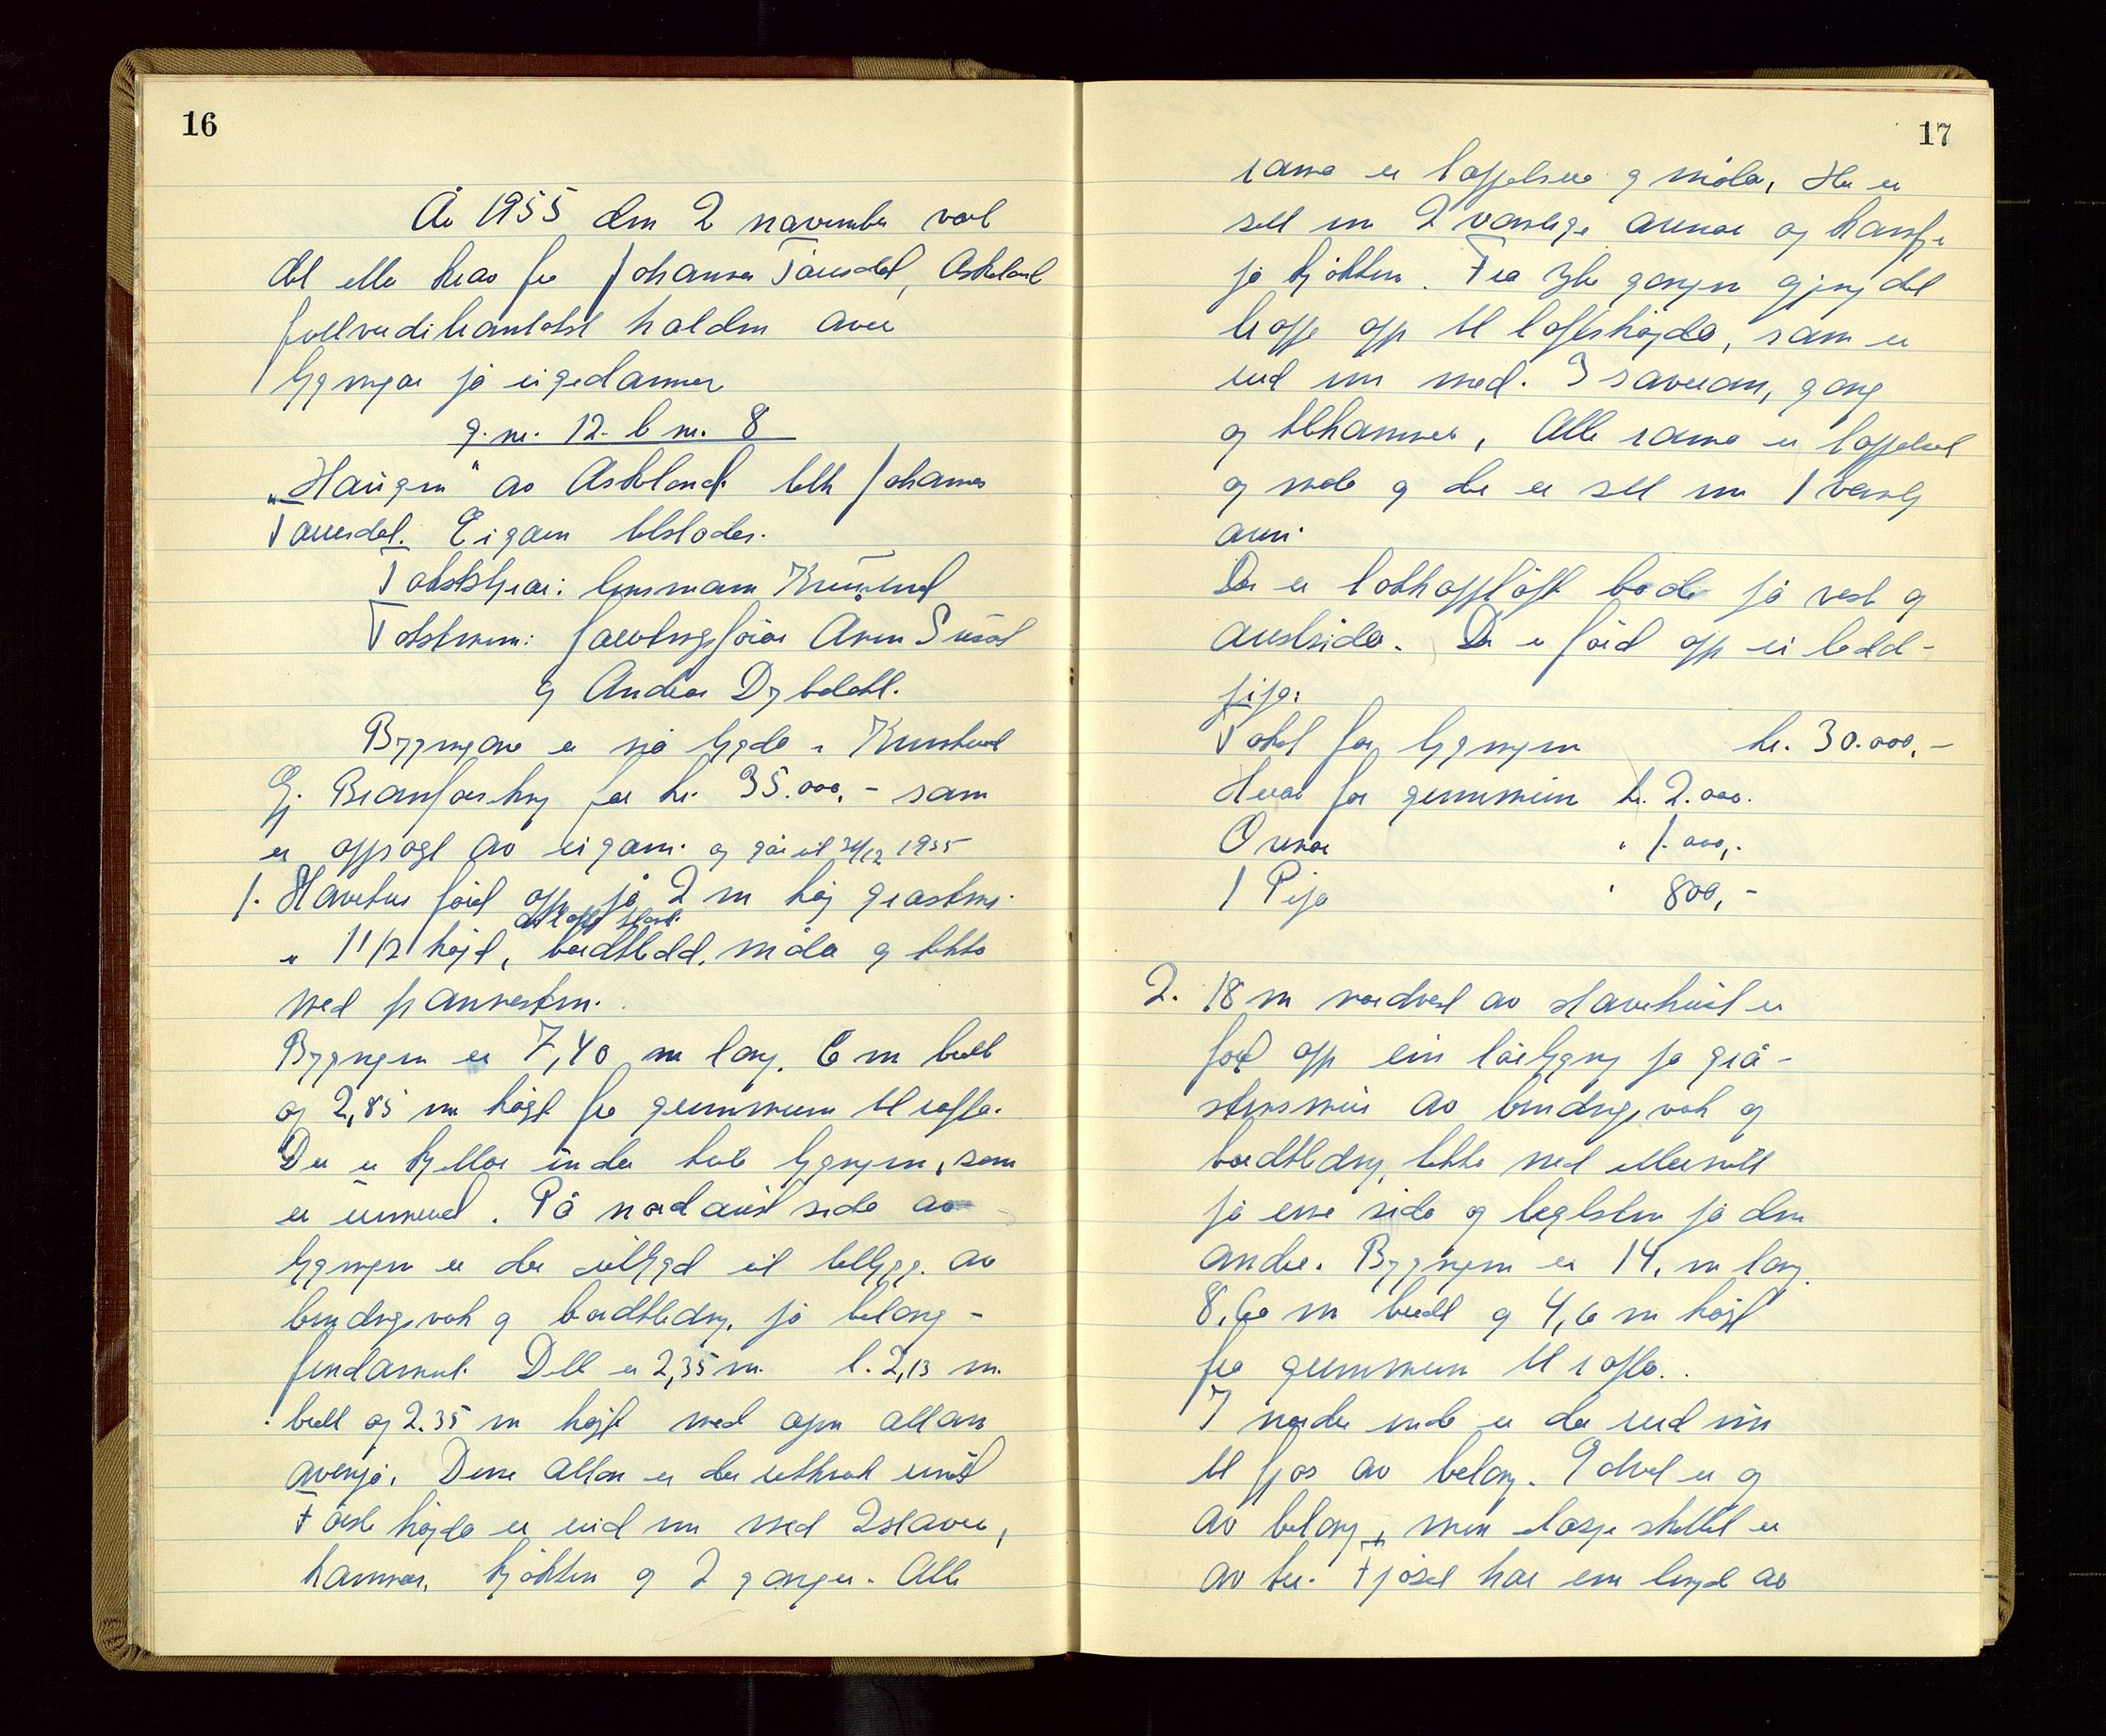 16
År 1955 den 2 november vart
det etter krav fra Johannes Taursdal, Askeland
fullverdibranntakst halden over
bygningar på eigedommen
g.nr. 12. b nr. 8
"Haugen" av Askeland. tilh Johannes
Taursdal. Eigaren tilstades.
Takststyrar: lensmann
Takstmenn: forretningsførar
og Andreas Dybdahl.
Bygningane er no trygda i
Gj. Brannforsikring for kr. 35.000,- som
er oppsagt av eigaren. og går ut 31/12 1955
1. Våvehus ført opp på 2 m høg gråsteins-
mur 1 1/2 høgd, bordkledd, måla og tekka
med pannestein.
Bygningen er 7,40 m lang. 6 m breitt
og 2,85 m høgt fra grunnmuren til rafta.
Der er kjellar under heile bygningen, som
er innreid. På nordaust sida av
bygningen er der utbygd eit tilbygg av
bindingsverk og bordkledning, på betong-
fundament. Dette er 2,35 m. l. 2,13 m.
breitt og 2.35 m høgt med open altan
ovenpå. Denne altan er der utkrok
Første høgda er reid inn med 2 stover,
kammer, kjøkken og 2 ganger. Alle
17
roma er tappetsera og måla, Her er
sett inn 2 vanlege omnar og komfyr
på kjøkken. Fra ytre gangen gjeng det
trapp opp til loftshøgda, som er
reid inn med. 3 soverom, gang
og klekammers, Alle roma er tappetsert
og måla og der er sett inn 1 vanleg
omn.
Der er takoppløft både på vest og
austsida. Der er ført opp ei tedd-
pipa.
Takst for bygningen kr. 30.000,-
Herav for grunnmuren kr. 2.000.
Omnar " 1.000,-
1 Pipa " 800,-
2. 18 m nordvest av våvehuset er
ført opp ein løebygning på grå-
steinsmur av bindingsverk og
bordkledning, tekka med
på eine sida og teglstein på den
andre. Bygningen er 14, m lang
8,60 m breitt og 4,60 m høgt
fra grunnmuren til rafta.
I nordre ende er der reid inn
til fjøs av betong. Golvet er og
av betong, men etasjeskillet er
av tre. Fjøset har ein lengd av